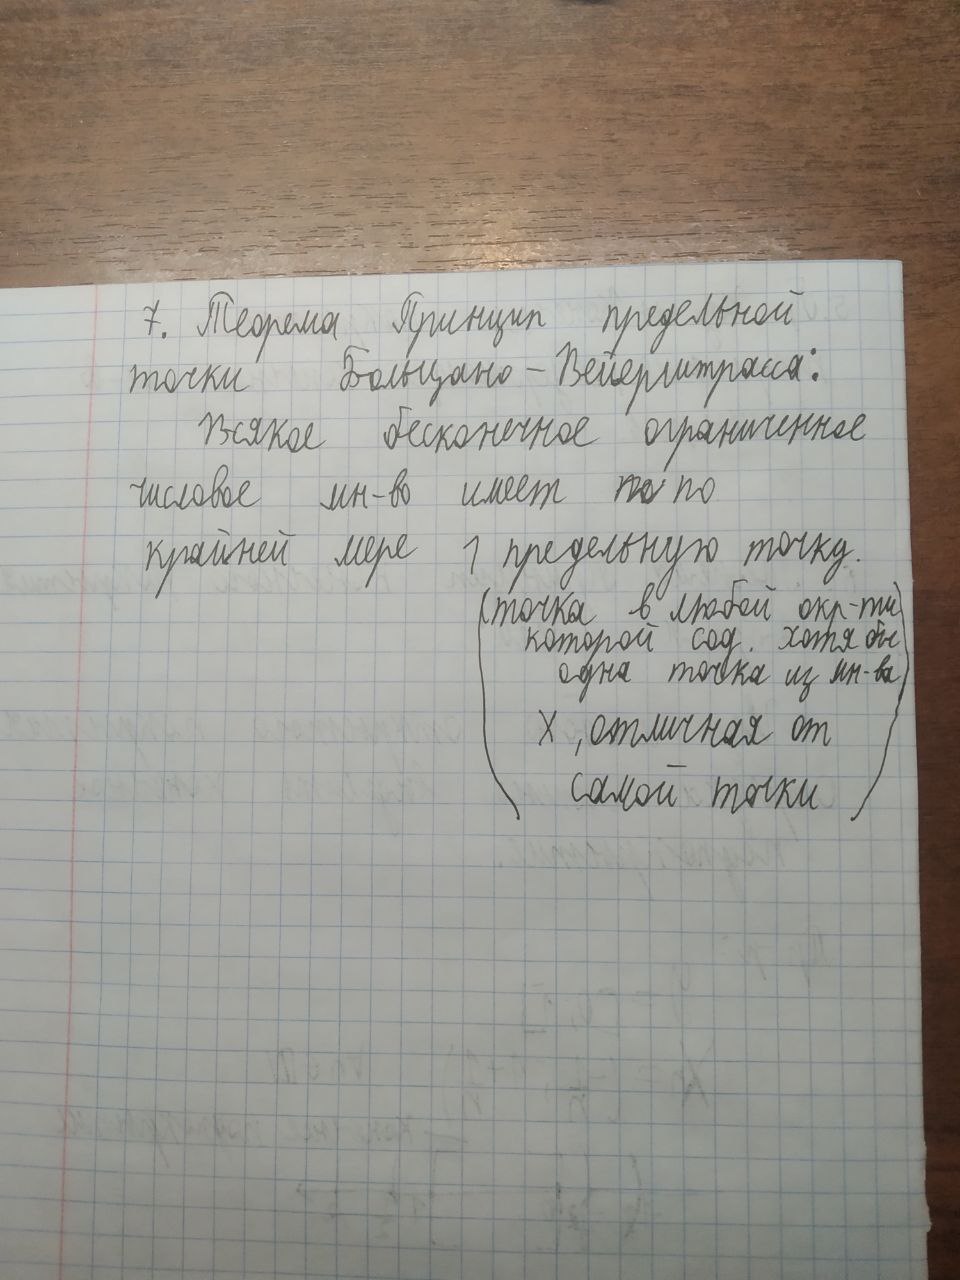 7. Теорема Принцип предельной
точки Больцано - Вейерштрасса:
Всякое бесконечное ограниченное
числовое мн-во имеет по по
крайней мере 1 предельную точку.
(точка в любой окр-ти
которой сод. хотя бы
одна точка из мн-ва
X, отличная от
самой точки)